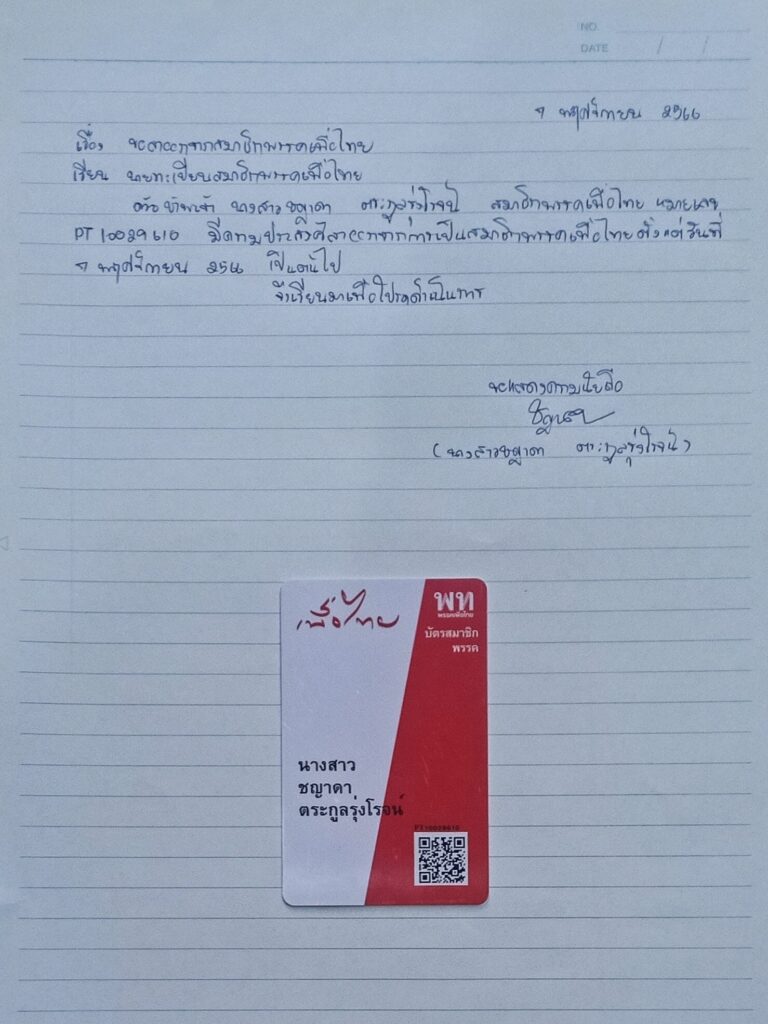 NO.
DATE / /
9 พฤศจิกายน 2566
เรื่อง ขอลาออกจากสมาชิกพรรคเพื่อไทย
เรียน นายทะเบียนสมาชิกพรรคเพื่อไทย
ด้วยข้าพเจ้า นางสาวชญาดา ตระกูลรุ่งโรจน์ สมาชิกพรรคเพื่อไทย หมายเลข
PT10029610 มีความประสงค์ลาออกจากการเป็นสมาชิกพรรคเพื่อไทย ตั้งแต่วันที่
9 พฤศจิกายน 2566 เป็นต้นไป
จึงเรียนมาเพื่อโปรดดำเนินการ
ขอแสดงความนับถือ
(นางสาวชญาดา ตระกูลรุ่งโรจน์)
เพื่อไทย
พท
พรรคเพื่อไทย
บัตรสมาชิก
พรรค
นางสาว
ชญาดา
ตระกูลรุ่งโรจน์
PT10029610